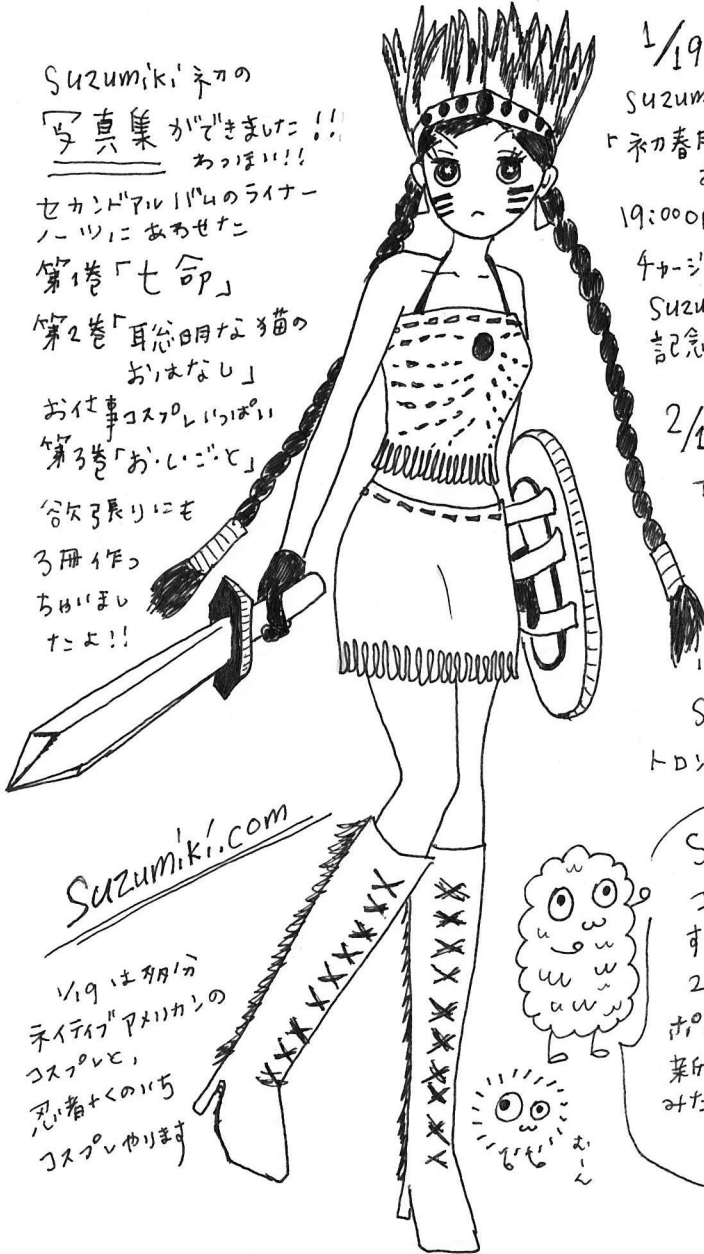 Suzumiki 初の
写真集ができました!!
わっほい!!
セカンドアルバムのライナー
ノーツにあわせた
第1巻「七命」
第2巻「聡明な猫の
おはなし」
お仕事コスプレいっぱい
第3巻「お・し・ご・と」
欲張りにも
3冊作っ
ちゃいまし
たよ!!
Suzumiki.com
1/19は多分
ネイティブアメリカンの
コスプレと、
忍者+くのいち
コスプレやります
1/19
suzum
「初春
19:00O
チャージ
Suzu
記念
2/1
S
トロン
S
す
2
ポ
新
みた
むーん